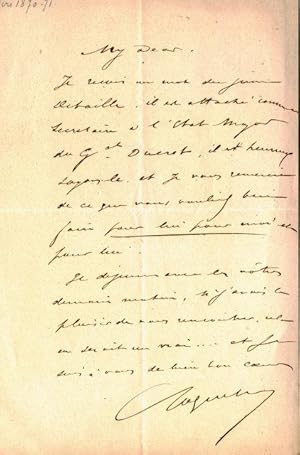 1870-71
My Dear.
Je reçois un mot du jeune
Detaille. il est attaché comme
Secrétaire à l'Etat Major
du Gal Ducrot, il est heureux
et je vous remercie
de ce que vous voulez bien
faire pour lui pour moi et
pour lui.
Je déjeune avec les nôtres
demain matin, si j'avais le
plaisir de vous rencontrer,
en serait un vrai... et je
suis à vous de bien bon cœur